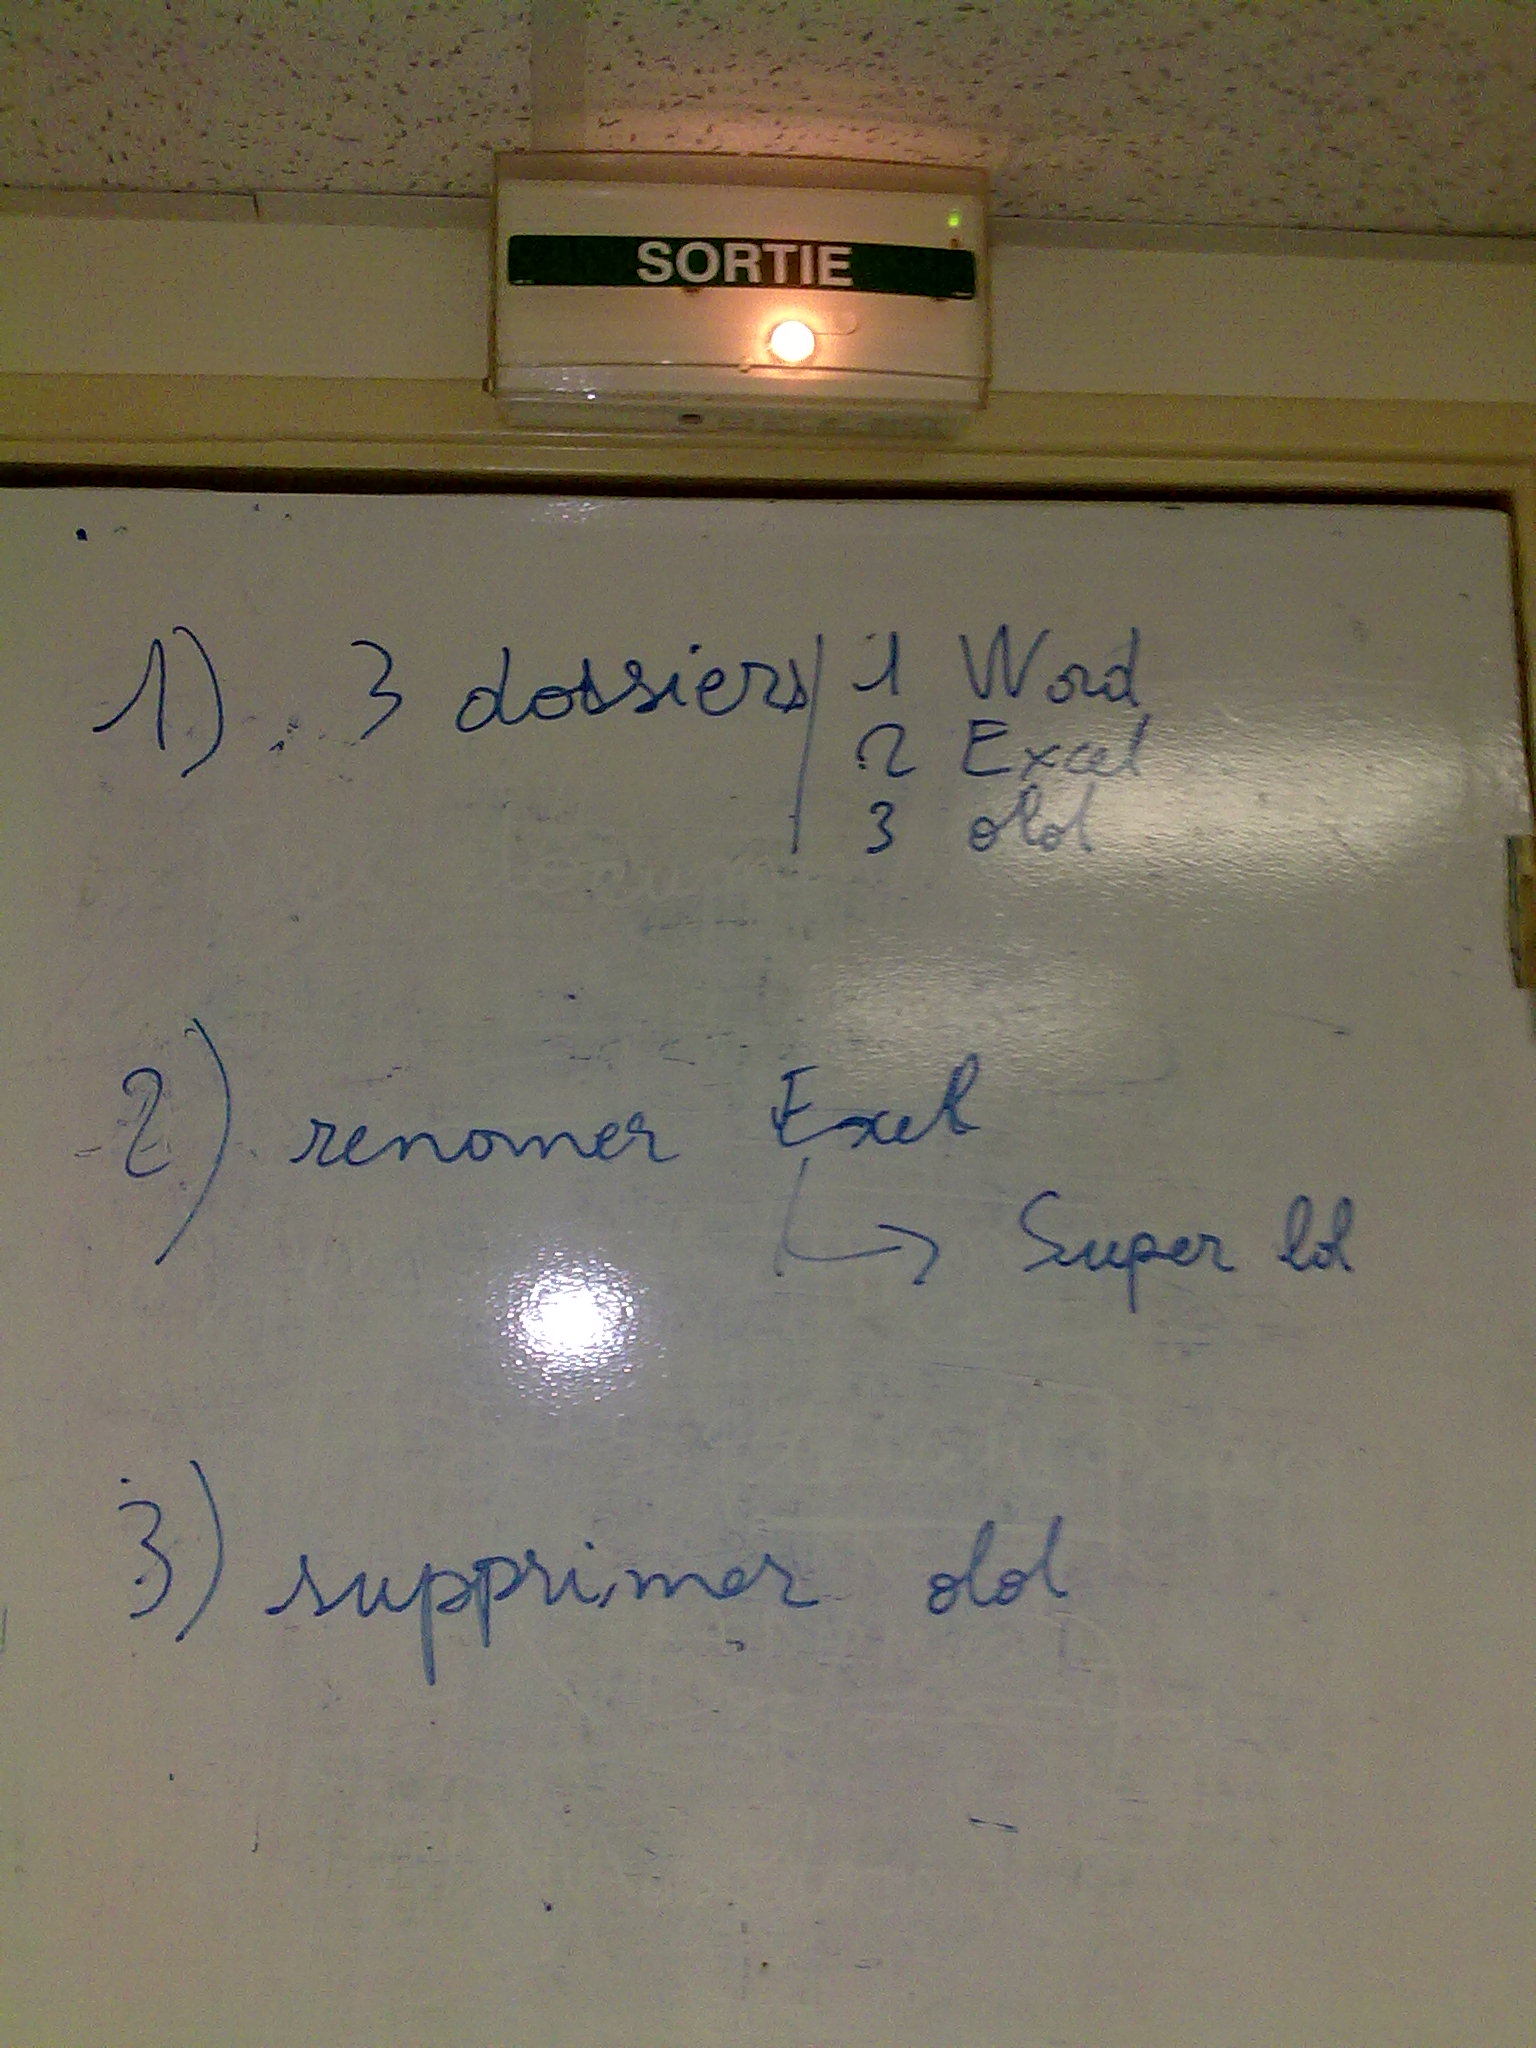 SORTIE
1) 3 dossiers / 1 Word
2 Excel
3 old
2) renomer Excel
→ Super lol
3) supprimer old